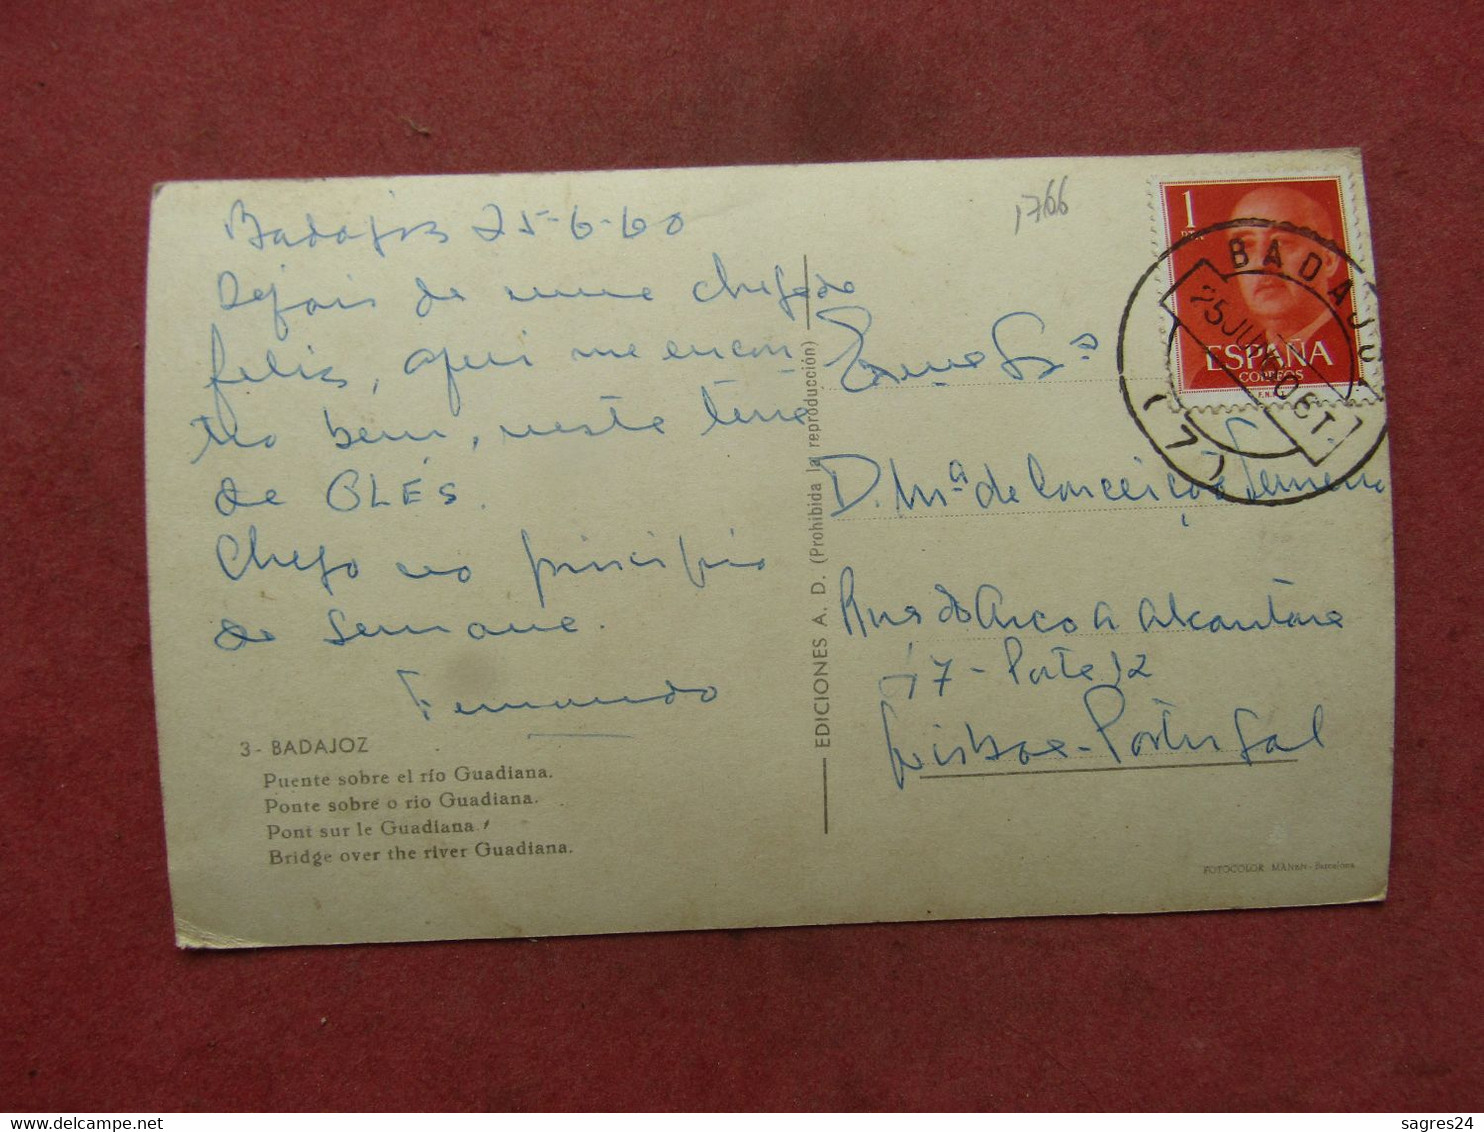 Badajós 25-6-60
Depois de uma chegada
feliz, aqui me encon-
tro bem, nesta terra
de OLÉS.
Chego no principio
da semana.
Fernando
3 - BADAJOZ
Puente sobre el río Guadiana.
Ponte sobre o rio Guadiana.
Pont sur le Guadiana.
Bridge over the river Guadiana.
EDICIONES A. D. (Prohibida la reproducción)
1766
1
PTA
ESPAÑA
CORREOS
F.N.M.T.
BADAJO
25 JUN 60 6T.
(7)
Exma Sra
D. Mª da Conceição
Rua do Arco a Alcantara
17 - Porta 12
Lisboa - Portugal
FOTOCOLOR MANEN - Barcelona
sagres24